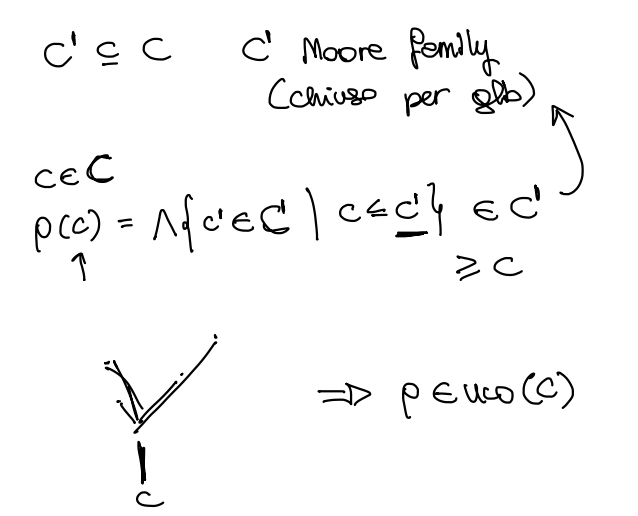 C' ⊆ C C' Moore family
(chiuso per glb)
c ∈ C
ρ(c) = ∧{c' ∈ C' | c ≤ c'} ∈ C'
≥ c
⇒ ρ ∈ uco(C)
c